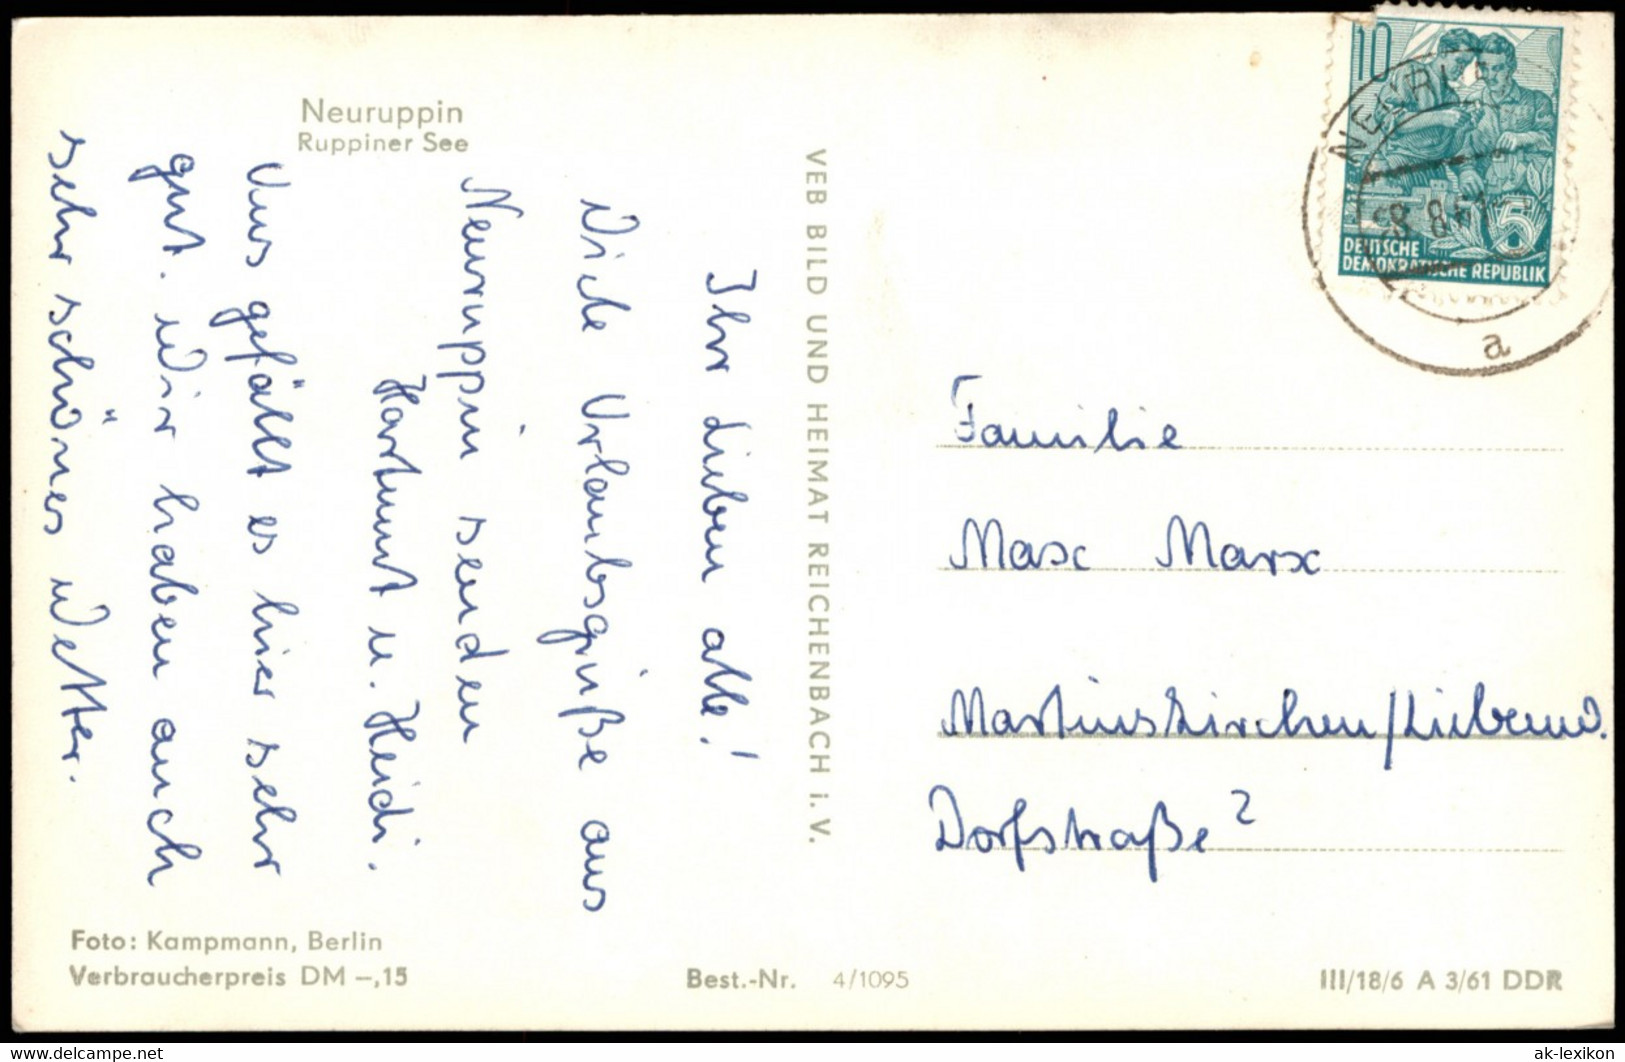 Neuruppin
Ruppiner See
Ihr Lieben alle!
Viele Urlaubsgrüße aus
Neuruppin senden
Hartmut u. Heidi.
Uns gefällt es hier sehr
gut. Wir haben auch
sehr schönes Wetter.
Foto: Kampmann, Berlin
Verbraucherpreis DM –,15
VEB BILD UND HEIMAT REICHENBACH i. V.
Best.-Nr. 4/1095
10
5
DEUTSCHE
DEMOKRATISCHE REPUBLIK
a
Familie
Max Marx
Martinskirchen/Liebenw.
Dorfstraße 2
III/18/6 A 3/61 DDR
https://www.delcampe.net
ak-lexikon